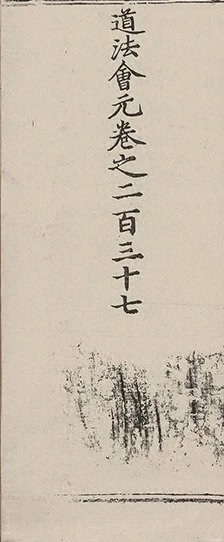 道法會元卷之二百三十七